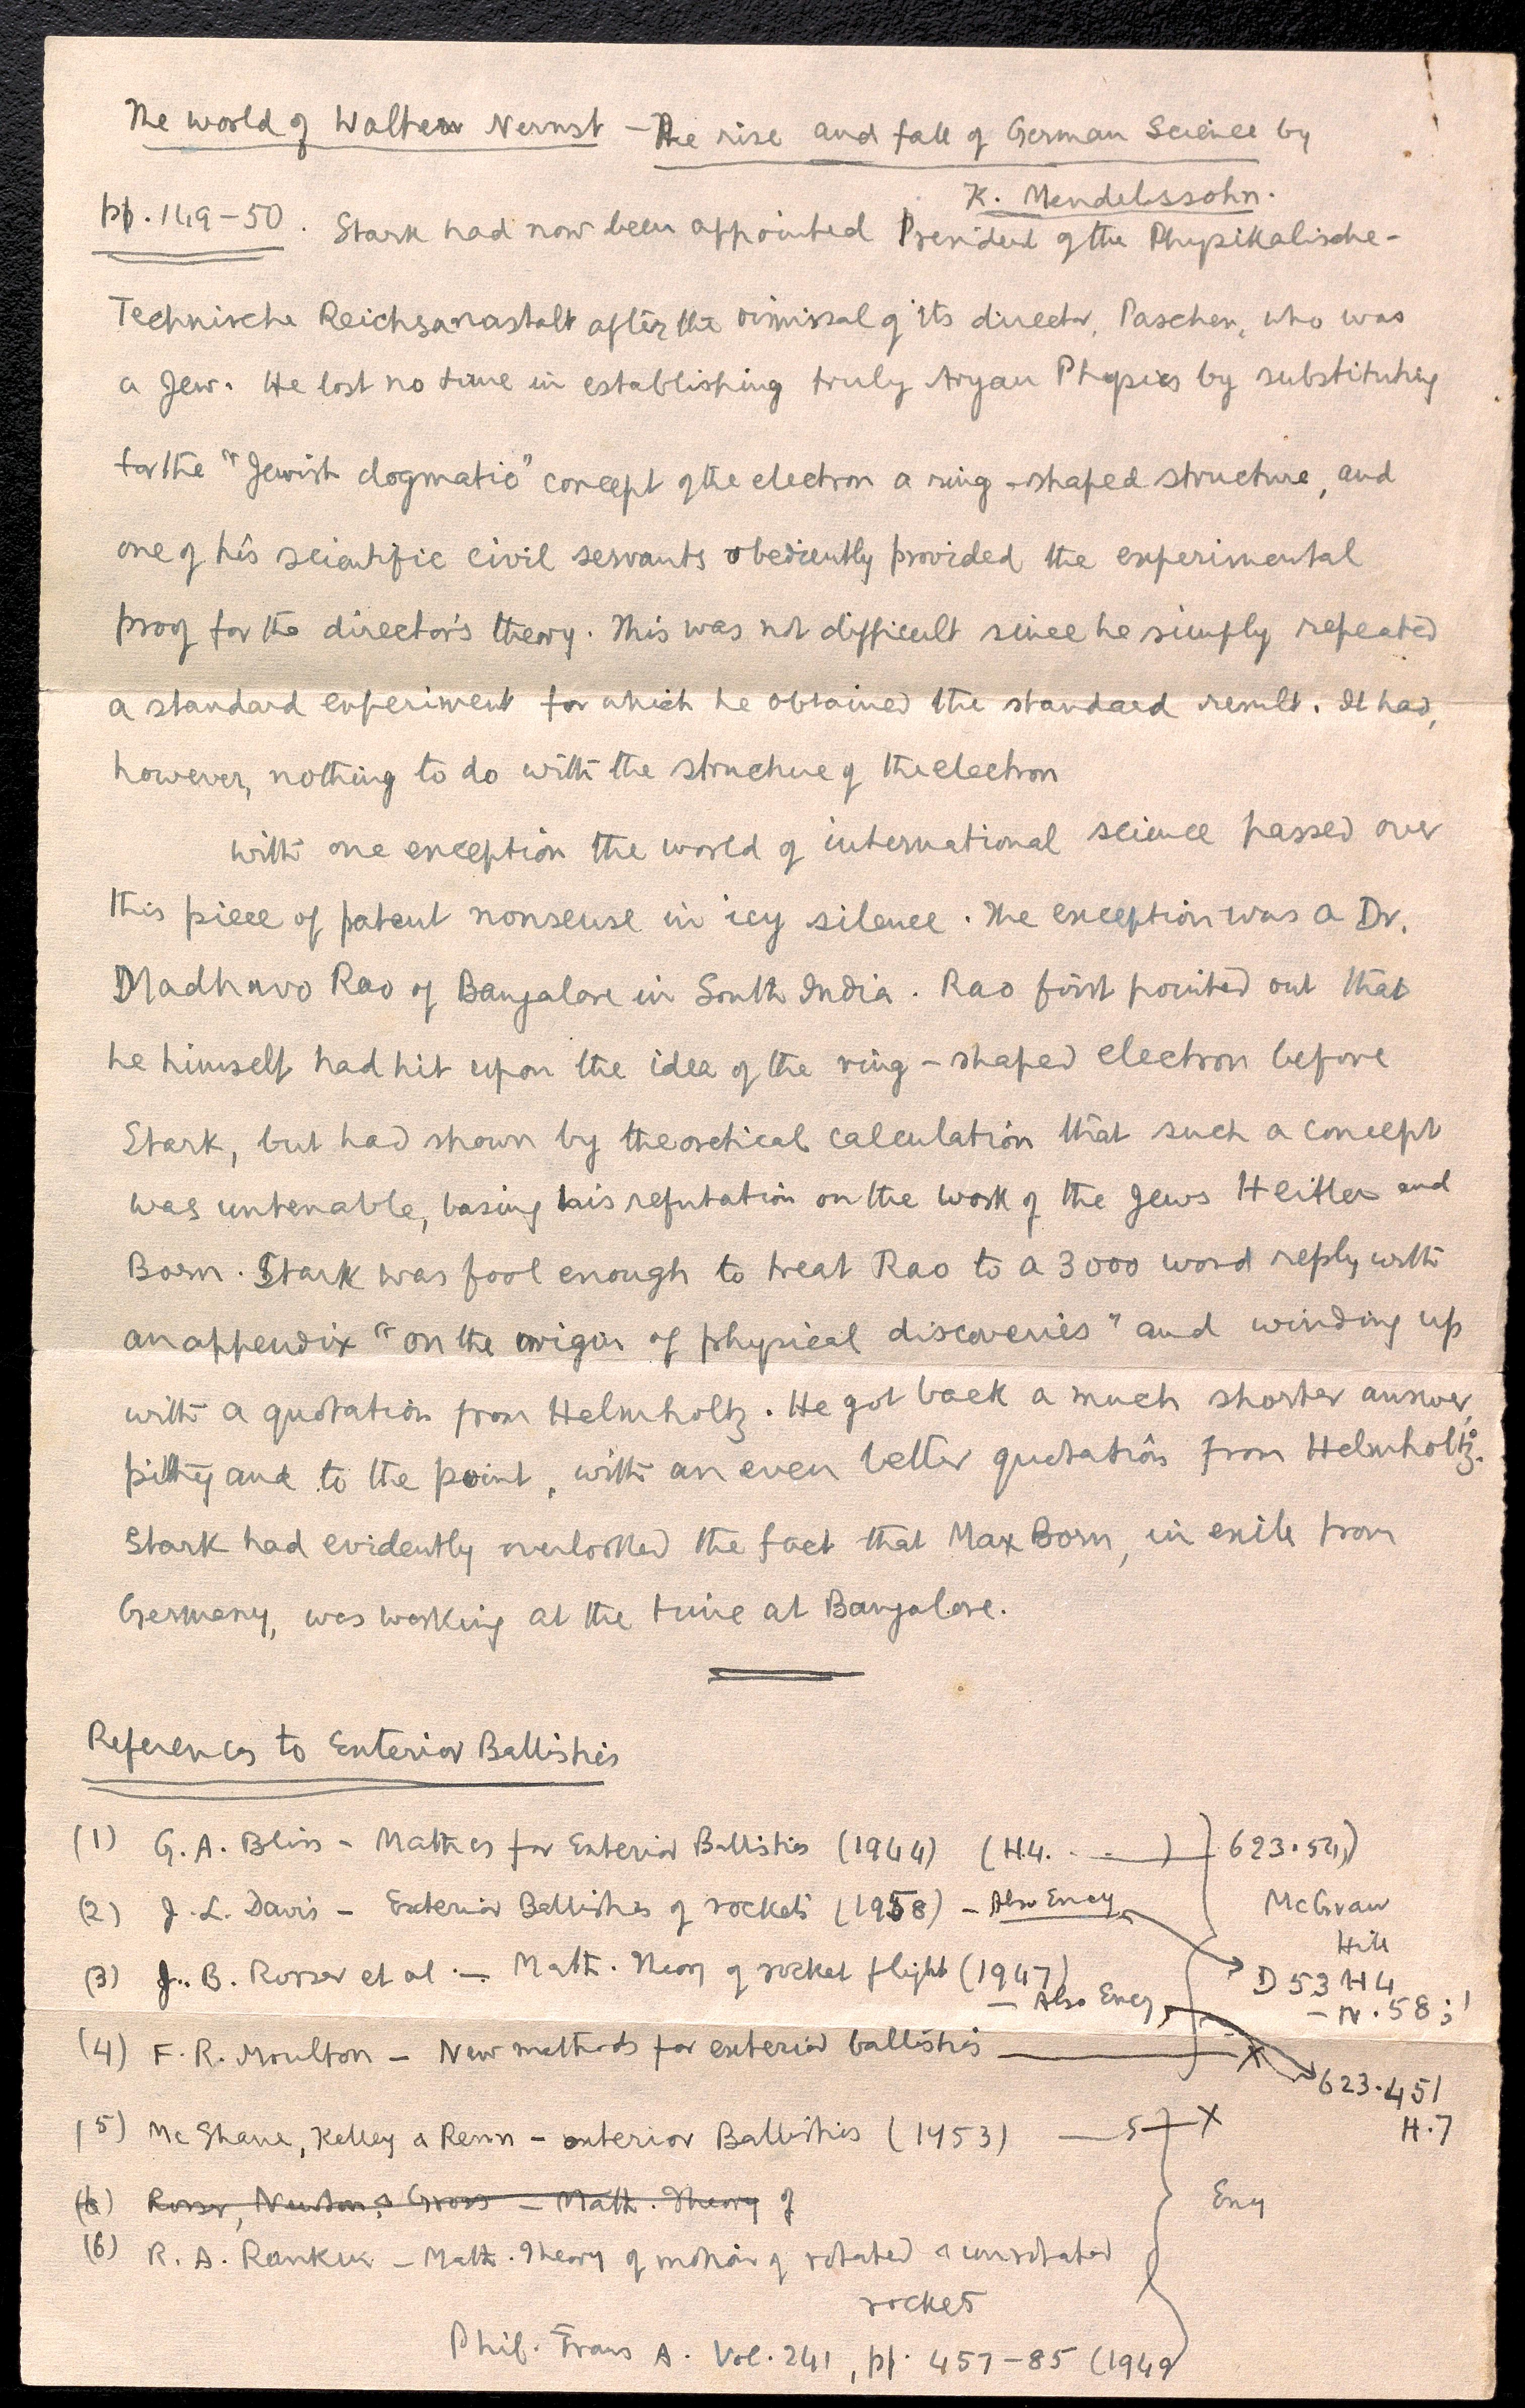 The world of Walter Nernst - The rise and fall of German Science by
K. Mendelssohn.
pp. 149-50. Stark had now been appointed President of the Physikalische-
Technische Reichsanastalt after the dismissal of its director, Paschen, who was
a Jew. He lost no time in establishing truly Aryan Physics by substituting
for the "Jewish dogmatic" concept of the electron a ring-shaped structure, and
one of his scientific civil servants obediently provided the experimental
proof for the director's theory. This was not difficult since he simply repeated
a standard experiment for which he obtained the standard result. It had,
however, nothing to do with the structure of the electron
with one exception the world of international science passed over
this piece of patent nonsense in icy silence. The exception was a Dr.
Madhavo Rao of Bangalore in South India. Rao first pointed out that
he himself had hit upon the idea of the ring-shaped electron before
Stark, but had shown by theoretical calculation that such a concept
was untenable, basing his refutation on the work of the Jews Heitler and
Born. Stark was fool enough to treat Rao to a 3000 word reply with
an appendix "on the origin of physical discoveries" and winding up
with a quotation from Helmholtz. He got back a much shorter answer,
pithy and to the point, with an even better quotation from Helmholtz.
Stark had evidently overlooked the fact that Max Born, in exile from
Germany, was working at the time at Bangalore.
References to Exterior Ballistics
(1) G. A. Bliss - Mathcs for Exterior Ballistics (1944) (H4. - - ) 623.54)
(2) J. L. Davis - Exterior Ballistics of rockets (1958) - Also Eng McGraw
Hill
(3) J. B. Rosser et al - Math. Theory of rocket flight (1947) D 53 H4
- Also Eng - N.58;1
(4) F. R. Moulton - New methods for exterior ballistics X
623.451
(5) McShane, Kelley & Reno - exterior Ballistics (1953) X H.7
(6) Rosser, Newton & Gross - Math. Theory of Eng
(6) R. A. Rankin - Math. Theory of motion of rotated & unrotated
rockets
Phil. Trans A. Vol. 241, pp. 457-85 (1949